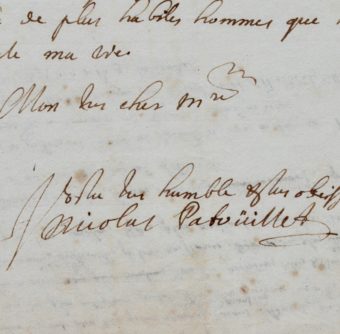 de plus habiles hommes que
de ma vie
Mon tres cher Mre
Vostre tres humble & tres obeiss
Nicolas Patoüillet